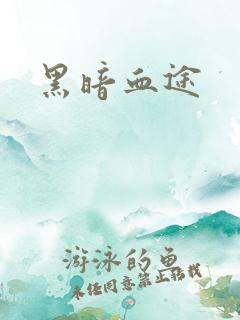 黑暗血途
游泳的鱼
未经同意禁止转载